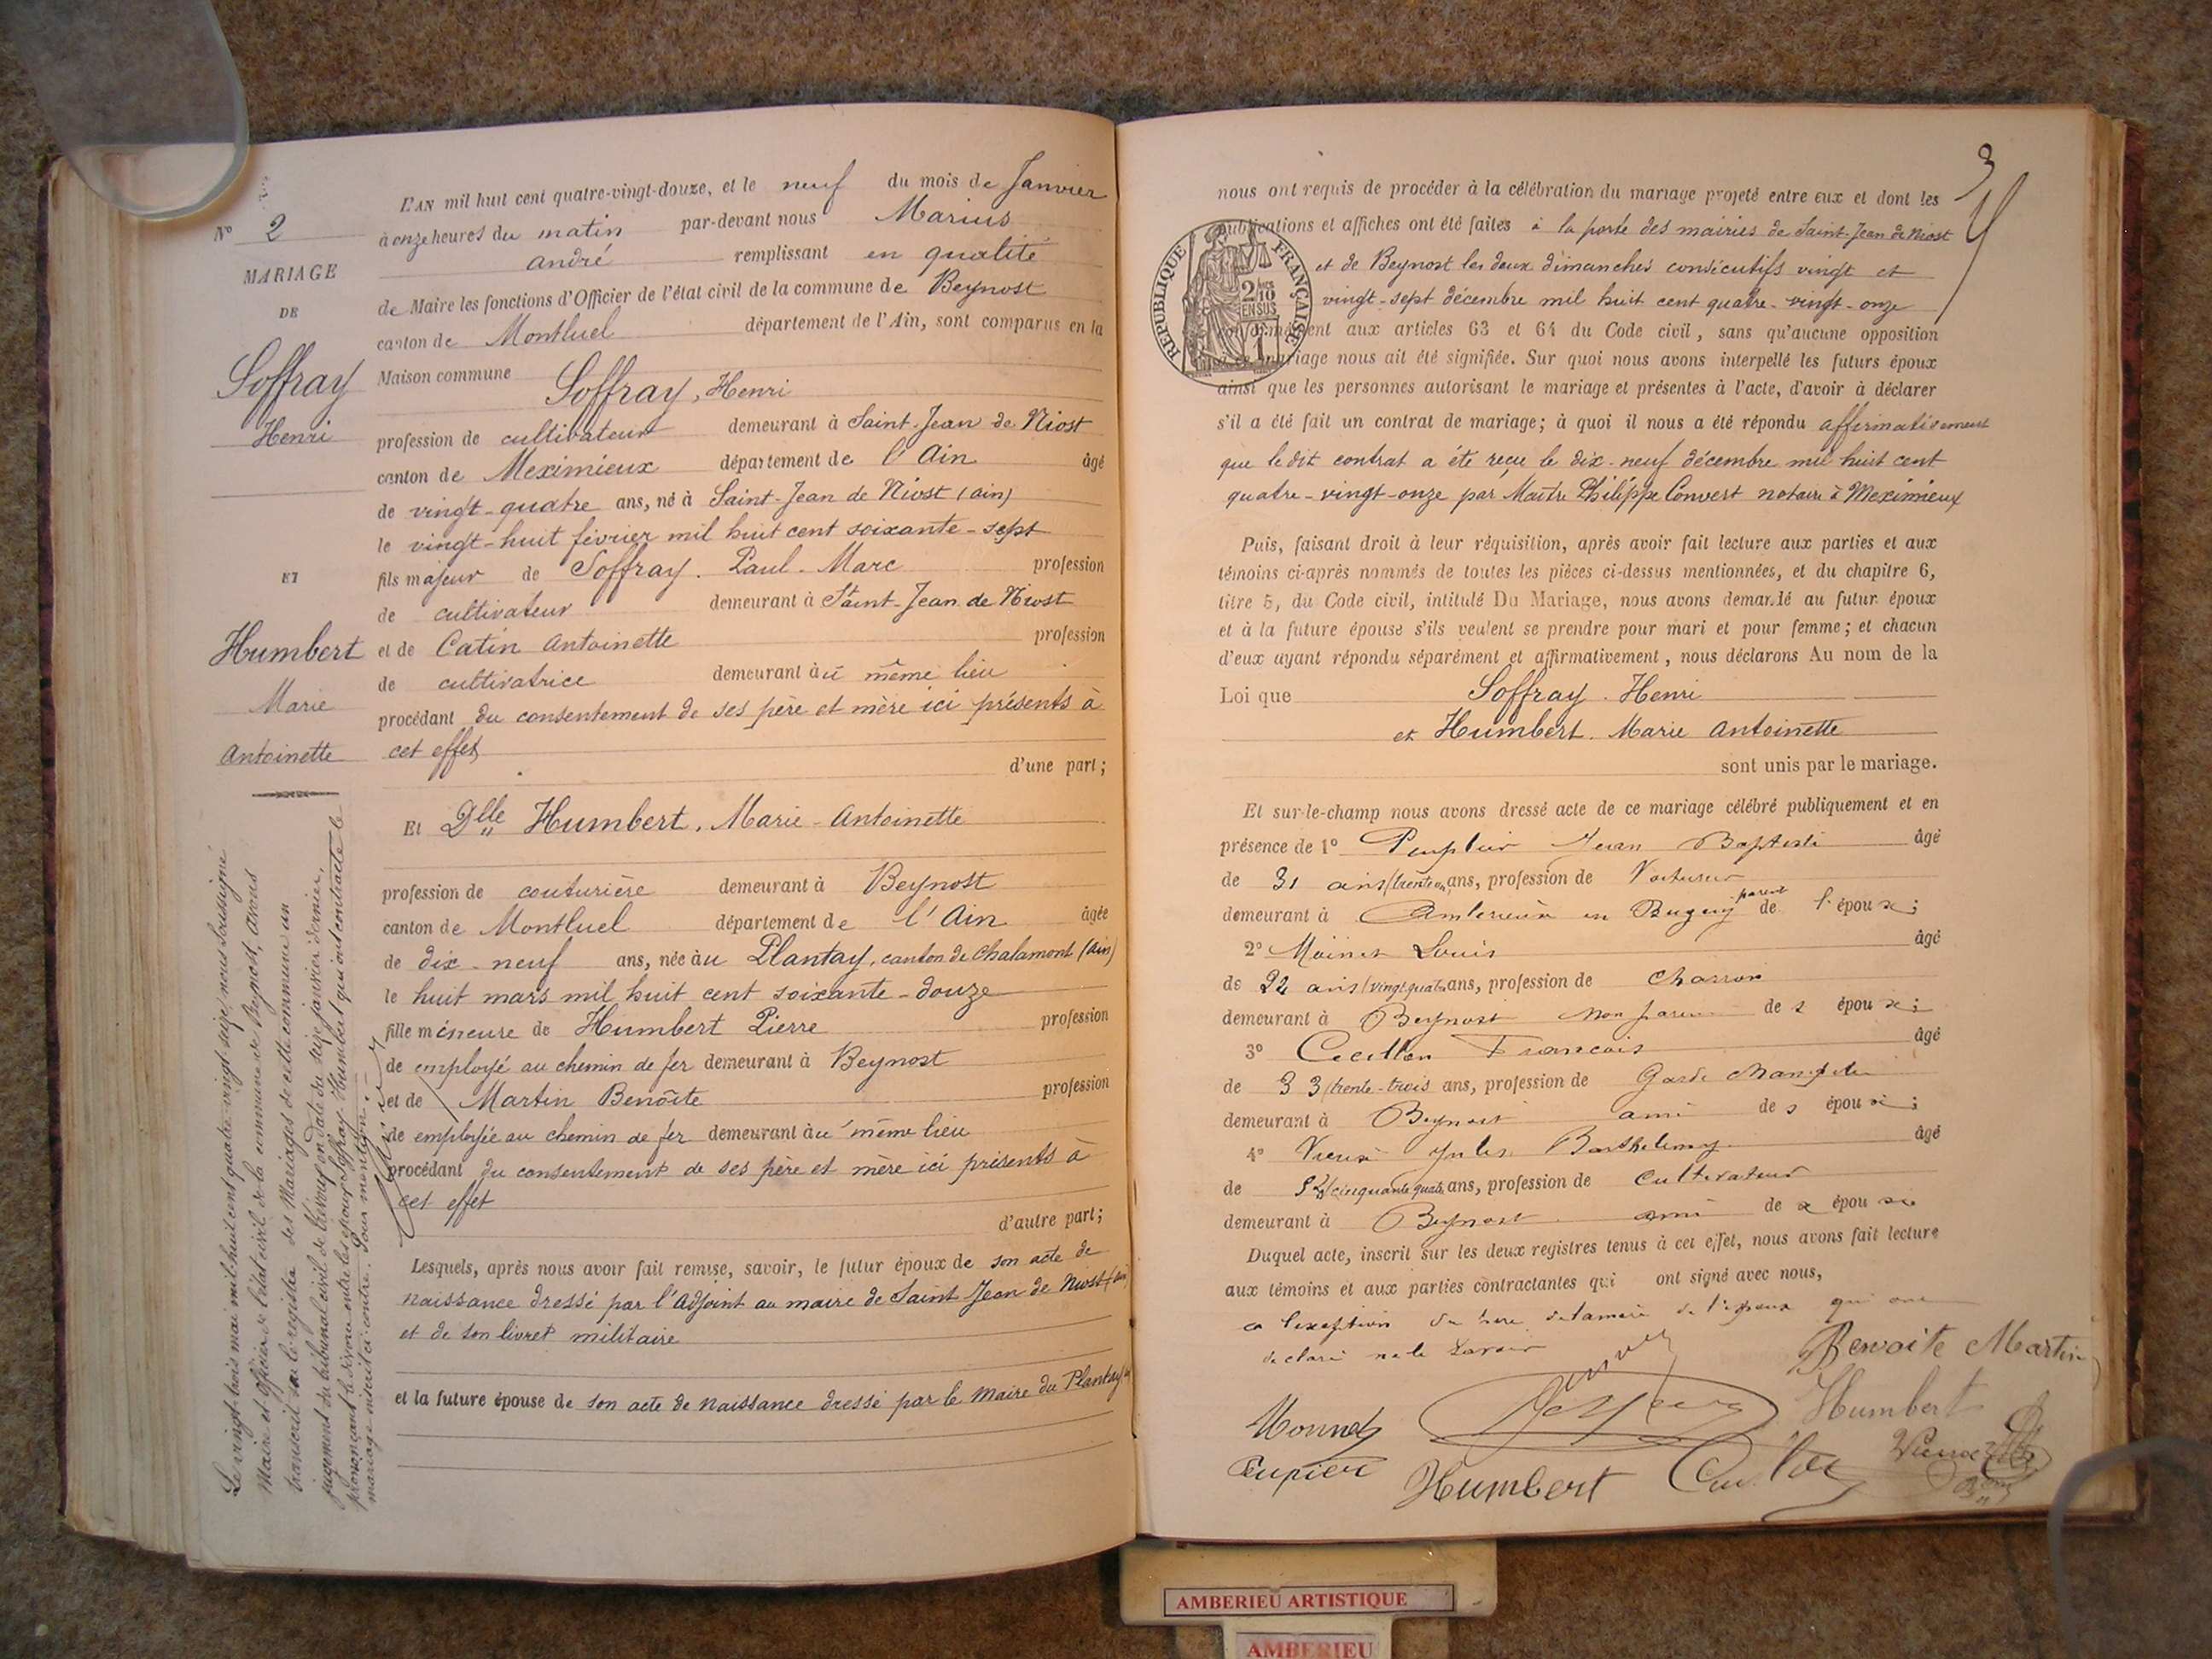 N° 2
MARIAGE
DE
Soffray
Henri
ET
Humbert
Marie
Antoinette
Le vingt-trois mai mil huit cent quatre-vingt-seize, nous soussigné
Maire et officier de l'état civil de la commune de Beynost, avons
transcrit sur le registre des Mariages de cette commune un
jugement du tribunal civil de Trévoux en date du seize janvier dernier,
prononçant le divorce entre les époux Soffray-Humbert qui ont contracté le
mariage inscrit ci-contre. Pour mention.
L'AN mil huit cent quatre-vingt-douze, et le neuf du mois de Janvier
à onze heures du matin par-devant nous Marius
André remplissant en qualité
de Maire les fonctions d'Officier de l'état civil de la commune de Beynost
canton de Montluel département de l'Ain, sont comparus en la
Maison commune Soffray, Henri
profession de cultivateur demeurant à Saint-Jean de Niost
canton de Meximieux département de l'Ain âgé
de vingt-quatre ans, né à Saint-Jean de Niost (ain)
le vingt-huit février mil huit cent soixante-sept
fils majeur de Soffray. Paul-Marc profession
de cultivateur demeurant à Saint-Jean de Niost
et de Catin Antoinette profession
de cultivatrice demeurant au même lieu
procédant du consentement de ses père et mère ici présents à
cet effet
d'une part;
Et Dlle Humbert, Marie-Antoinette
profession de couturière demeurant à Beynost
canton de Montluel département de l'Ain âgée
de dix-neuf ans, née au Plantay, canton de Chalamont (ain)
le huit mars mil huit cent soixante-douze
fille mineure de Humbert Pierre profession
de employé au chemin de fer demeurant à Beynost
et de Martin Benoîte profession
de employée au chemin de fer demeurant au même lieu
procédant du consentement de ses père et mère ici présents à
cet effet
d'autre part;
Lesquels, après nous avoir fait remise, savoir, le futur époux de son acte de
naissance dressé par l'Adjoint au maire de Saint Jean de Niost (ain)
et de son livret militaire
et la future épouse de son acte de naissance dressé par le Maire du Plantay
3
nous ont requis de procéder à la célébration du mariage projeté entre eux et dont les
publications et affiches ont été faites à la porte des mairies de Saint-Jean de Niost
et de Beynost les deux dimanches consécutifs vingt et
vingt-sept décembre mil huit cent quatre-vingt-onze
conformément aux articles 63 et 64 du Code civil, sans qu'aucune opposition
mariage nous ait été signifiée. Sur quoi nous avons interpellé les futurs époux
ainsi que les personnes autorisant le mariage et présentes à l'acte, d'avoir à déclarer
s'il a été fait un contrat de mariage; à quoi il nous a été répondu affirmativement
que le dit contrat a été reçu le dix-neuf décembre mil huit cent
quatre-vingt-onze par Maître Philippe Convert notaire à Meximieux
REPUBLIQUE FRANÇAISE
2/10 EN SUS
Puis, faisant droit à leur réquisition, après avoir fait lecture aux parties et aux
témoins ci-après nommés de toutes les pièces ci-dessus mentionnées, et du chapitre 6,
titre 5, du Code civil, intitulé Du Mariage, nous avons demandé au futur époux
et à la future épouse s'ils veulent se prendre pour mari et pour femme; et chacun
d'eux ayant répondu séparément et affirmativement, nous déclarons Au nom de la
Loi que Soffray. Henri
et Humbert. Marie Antoinette
sont unis par le mariage.
Et sur-le-champ nous avons dressé acte de ce mariage célébré publiquement et en
présence de 1° Jean Baptiste âgé
de 31 ans, profession de Voiturier
demeurant à en Bugey parent de l'époux;
2° Louis âgé
de ans, profession de Charron
demeurant à Beynost non parent des époux;
3° François âgé
de 33 (trente-trois ans, profession de Garde Champêtre
demeurant à Beynost ami des époux;
4° Jules Barthelemy âgé
de cinquante quatre ans, profession de Cultivateur
demeurant à Beynost ami de époux
Duquel acte, inscrit sur les deux registres tenus à cet effet, nous avons fait lecture
aux témoins et aux parties contractantes qui ont signé avec nous,
a l'exception du père et la mère de l'époux qui ont
déclaré ne le savoir
Benoite Martin
Humbert
Humbert
AMBERIEU ARTISTIQUE
AMBERIEU